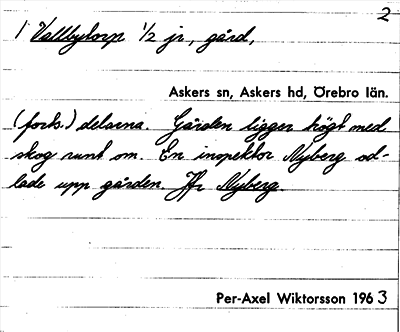 2
1 Vallbytorp ½ jr, gård,
Askers sn, Askers hd, Örebro län.
(forts.) delarna. Gården ligger högt med
skog runt om. En inspektor Nyberg od-
lade upp gården. Jfr Nyberg.
Per-Axel Wiktorsson 1963